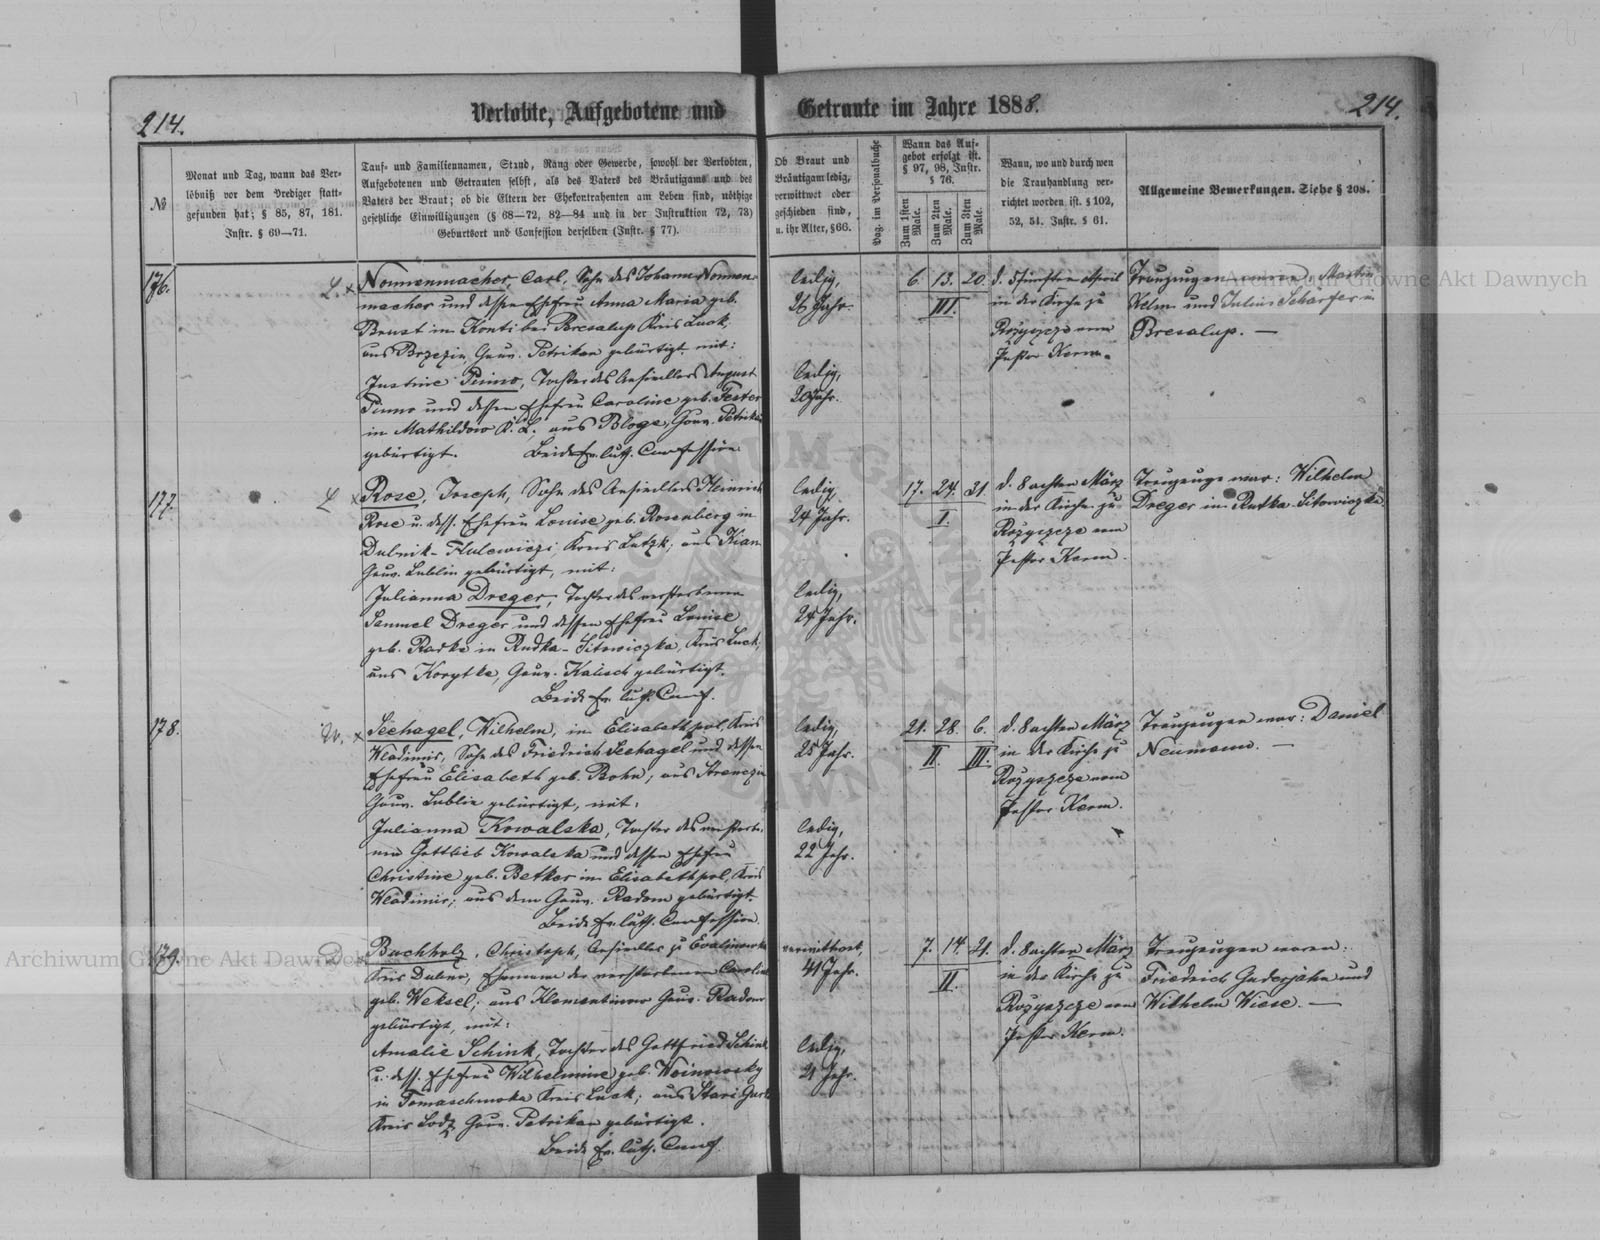 214.
Verlobte, Aufgebotene und
Getraute im Jahre 1888.
214.
№
Monat und Tag, wann das Ver-
löbniß vor dem Prediger statt-
gefunden hat; § 85, 87, 181.
Instr. § 69—71.
Tauf- und Familiennamen, Stand, Rang oder Gewerbe, sowohl der Verlobten,
Aufgebotenen und Getrauten selbst, als des Vaters des Bräutigams und des
Vaters der Braut; ob die Eltern der Ehekontrahenten am Leben sind, nöthige
gesetzliche Einwilligungen (§ 68—72, 82—84 und in der Instruktion 72, 73)
Geburtsort und Confession derselben (Instr. § 77).
Ob Braut und
Bräutigam ledig,
verwittwet oder
geschieden sind,
u. ihr Alter, § 66.
Pag. im Personalbuche
Wann das Auf-
gebot erfolgt ist.
§ 97, 98, Instr.
§ 76.
Zum 1sten Male.
Zum 2ten Male.
Zum 3ten Male.
Wann, wo und durch wen
die Trauhandlung ver-
richtet worden ist. § 102,
52, 54. Instr. § 61.
Allgemeine Bemerkungen. Siehe § 208.
176.
L. x
Nonnenmacher, Carl, Sohn des Johann Nonnen-
macher und dessen Ehefrau Anna Maria geb.
Brust in Konti bei Bresalup Kreis Luck.
aus Brzezin Gouv. Petrikau gebürtigt, mit:
Justine Pinno, Tochter des Ansiedlers August
Pinno und dessen Ehefrau Caroline geb. Fester
in Mathildow K. L., aus Bloge, Gouv. Petrikau
gebürtigt. Beide Ev. luth. Confession.
ledig,
26 Jahr.
ledig,
20 Jahr.
6. 13. 20.
III.
in der Kirche zu
Rozyszcze vom
Pastor Kerm.
Trauzeugen waren, Martin
Kelm und Julius Scharfer in
Bresalup. —
177.
L x
Rose, Joseph, Sohn des Ansiedlers Heinrich
Rose u. dess. Ehefrau Louise geb. Rosenberg in
Dubnik-Hulewiczi Kreis Lutzk; aus Kian
Gouv. Lublin gebürtigt, mit:
Julianna Dreger, Tochter des verstorbenen
Samuel Dreger und dessen Ehefrau Louise
geb. Radke in Rudka-Sitowiczka, Kreis Luck,
aus Korytke, Gouv. Kalisch gebürtigt.
Beide Ev. luth. Conf.
ledig,
24 Jahr.
ledig,
24 Jahr.
17. 24. 31.
I.
d. 8 achten März
in der Kirche zu
Rozyszcze vom
Pastor Kerm.
Trauzeuge war: Wilhelm
Dreger in Rudka-Sitowiczka.
178.
W. x
Seehagel, Wilhelm, in Elisabethpol, Kreis
Wladimir, Sohn des Friedrich Seehagel und dessen
Ehefrau Elisabeth geb. Bohn; aus
Gouv. Lublin gebürtigt, mit:
Julianna Kowalska, Tochter des verstorbe-
nen Gottlieb Kowalska und dessen Ehefrau
Christine geb. Betker in Elisabethpol, Kreis
Wladimir; aus dem Gouv. Radom gebürtigt.
Beide Ev. luth. Confession.
ledig,
25 Jahr.
ledig,
22 Jahr.
21. 28. 6.
II. III.
d. 8 achten März
in der Kirche zu
Rozyszcze vom
Pastor Kerm.
Trauzeugen war: Daniel
Neumann. —
179.
D.
Buchholz, Christoph, Ansiedler zu
Kreis Dubno, Ehemann der verstorbenen Caroline
geb. Weksel; aus Klementinow Gouv. Radom
gebürtigt, mit:
Amalie Schink, Tochter des Gottfried Schink
u. dess. Ehefrau Wilhelmine geb. Woinowsky
in Tomaschowka Kreis Luck; aus Stari
Kreis Lodz Gouv. Petrikau gebürtigt.
Beide Ev. luth. Conf.
verwittwet,
41 Jahr.
ledig,
21 Jahr.
7. 14. 21.
II.
d. 8 achten März
in der Kirche zu
Rozyszcze vom
Pastor Kerm.
Trauzeugen waren:
Friedrich Guderjahn und
Wilhelm Wiese. —
Archiwum Główne Akt Dawnych
Archiwum Główne Akt Dawnych